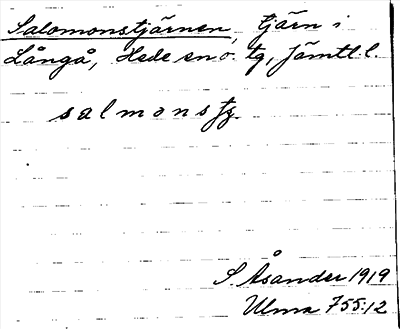 Salomonstjärnen, tjärn i
Långå, Hede sn o. tg, Jämtl. l.
salmonstj.
S Åsander 1919
Ulma 755:12